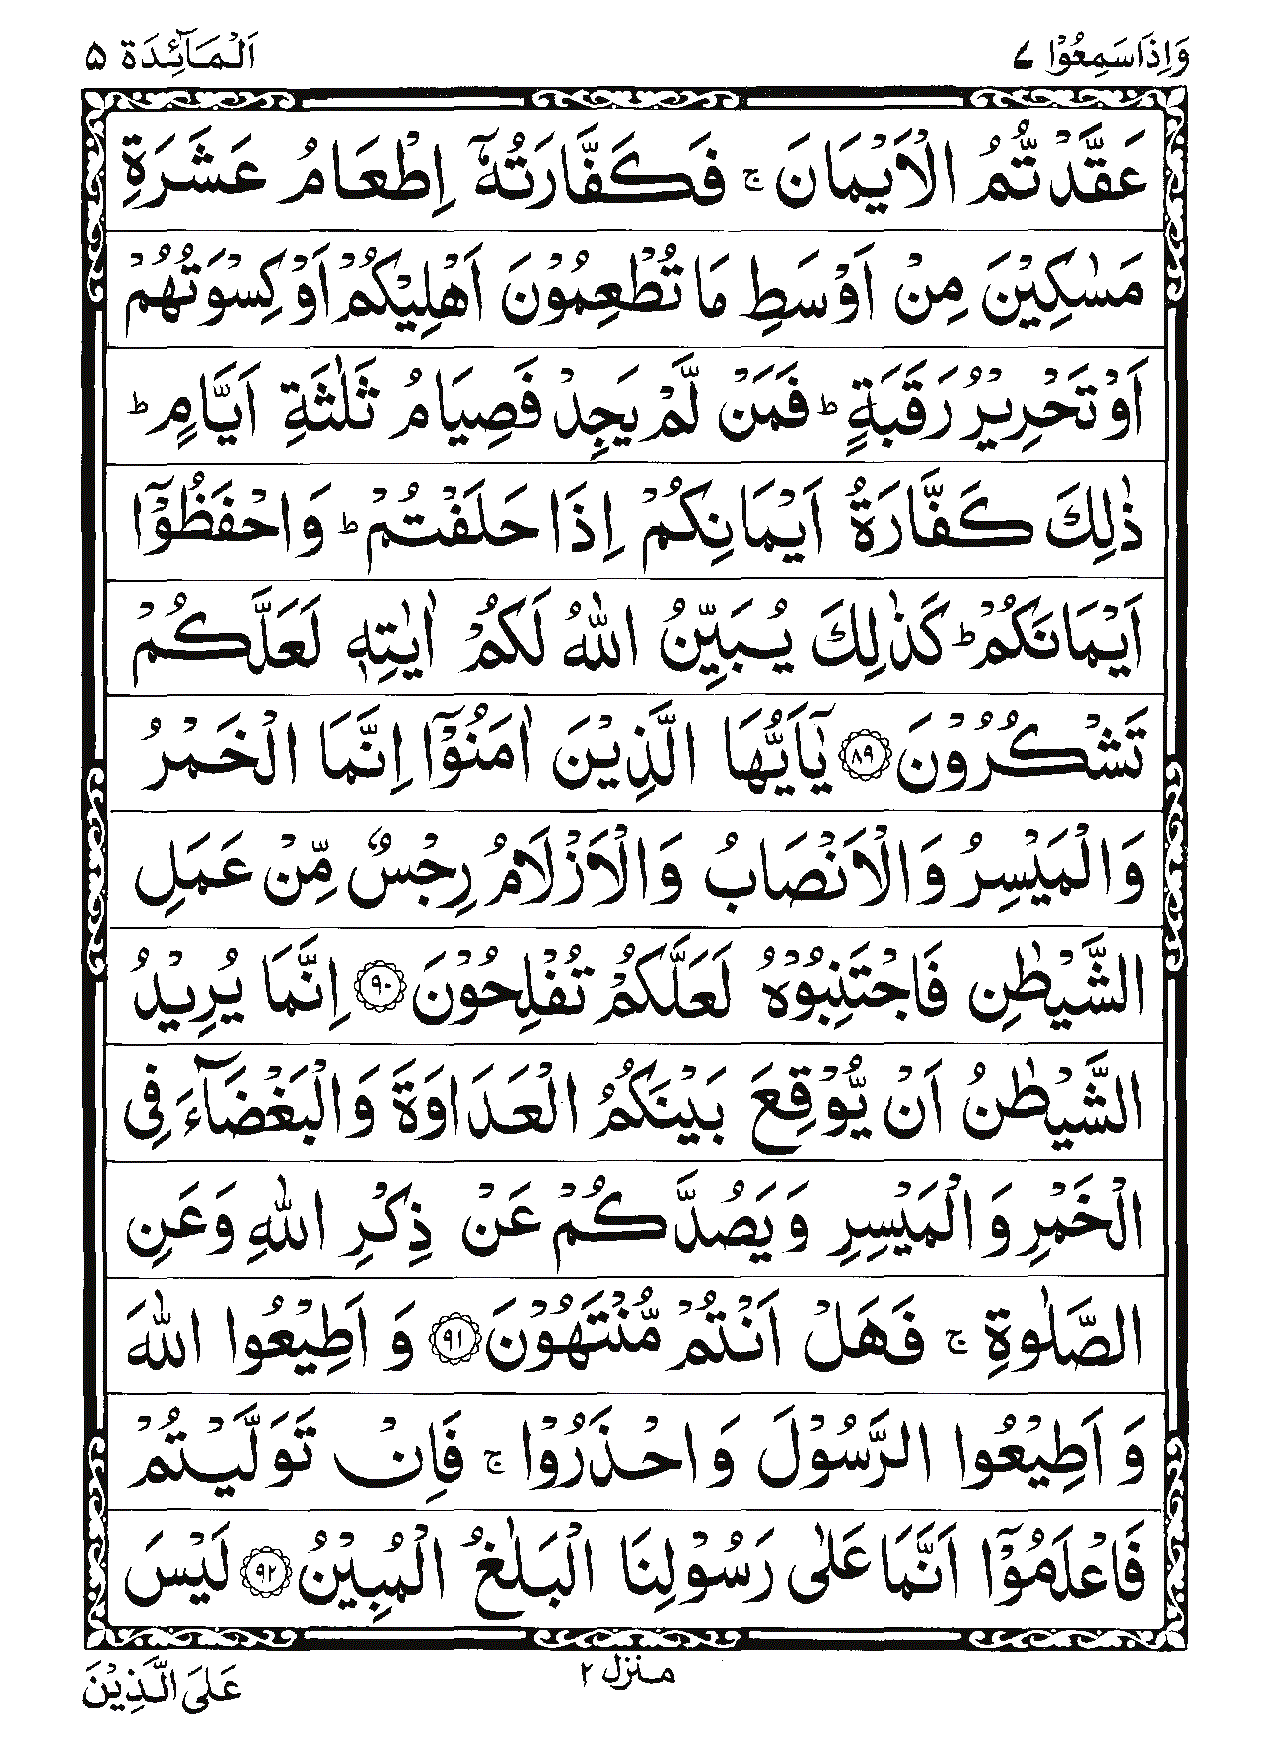 وَاِذَاسَمِعُوْا ۷
اَلْمَآئِدَة ۵
عَقَّدْتُّمُ الْاَيْمَانَ ۚ فَكَفَّارَتُهٗۤ اِطْعَامُ عَشَرَةِ
مَسٰكِيْنَ مِنْ اَوْسَطِ مَا تُطْعِمُوْنَ اَهْلِيْكُمْ اَوْ كِسْوَتُهُمْ
اَوْ تَحْرِيْرُ رَقَبَةٍ ؕ فَمَنْ لَّمْ يَجِدْ فَصِيَامُ ثَلٰثَةِ اَيَّامٍ ؕ
ذٰلِكَ كَفَّارَةُ اَيْمَانِكُمْ اِذَا حَلَفْتُمْ ؕ وَاحْفَظُوْۤا
اَيْمَانَكُمْ ؕ كَذٰلِكَ يُبَيِّنُ اللّٰهُ لَكُمْ اٰيٰتِهٖ لَعَلَّكُمْ
تَشْكُرُوْنَ ﴿۸۹﴾ يٰۤاَيُّهَا الَّذِيْنَ اٰمَنُوْۤا اِنَّمَا الْخَمْرُ
وَالْمَيْسِرُ وَالْاَنْصَابُ وَالْاَزْلَامُ رِجْسٌ مِّنْ عَمَلِ
الشَّيْطٰنِ فَاجْتَنِبُوْهُ لَعَلَّكُمْ تُفْلِحُوْنَ ﴿۹۰﴾ اِنَّمَا يُرِيْدُ
الشَّيْطٰنُ اَنْ يُّوْقِعَ بَيْنَكُمُ الْعَدَاوَةَ وَالْبَغْضَآءَ فِى
الْخَمْرِ وَالْمَيْسِرِ وَيَصُدَّكُمْ عَنْ ذِكْرِ اللّٰهِ وَعَنِ
الصَّلٰوةِ ۚ فَهَلْ اَنْتُمْ مُّنْتَهُوْنَ ﴿۹۱﴾ وَ اَطِيْعُوا اللّٰهَ
وَ اَطِيْعُوا الرَّسُوْلَ وَ احْذَرُوْا ۚ فَاِنْ تَوَلَّيْتُمْ
فَاعْلَمُوْۤا اَنَّمَا عَلٰى رَسُوْلِنَا الْبَلٰغُ الْمُبِيْنُ ﴿۹۲﴾ لَيْسَ
منزل ۲
عَلَى الَّذِيْنَ